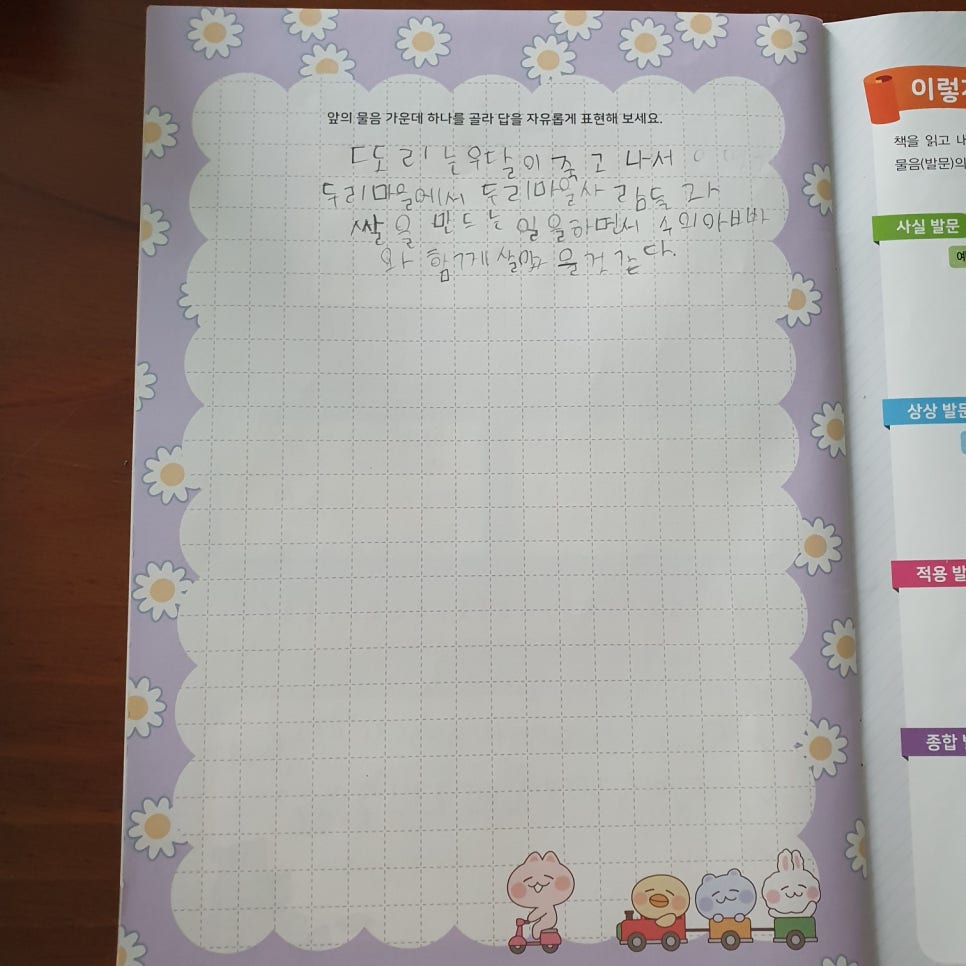 앞의 물음 가운데 하나를 골라 답을 자유롭게 표현해 보세요.
도리는우달이 죽고 나서
두리마을에서 두리마을사람들과
쌀을 만드는 일을하면서 수의아빠
와 함께 살았을것같다.
책을 읽고
물음(발문)의
사실 발문
상상 발문
적용
종합